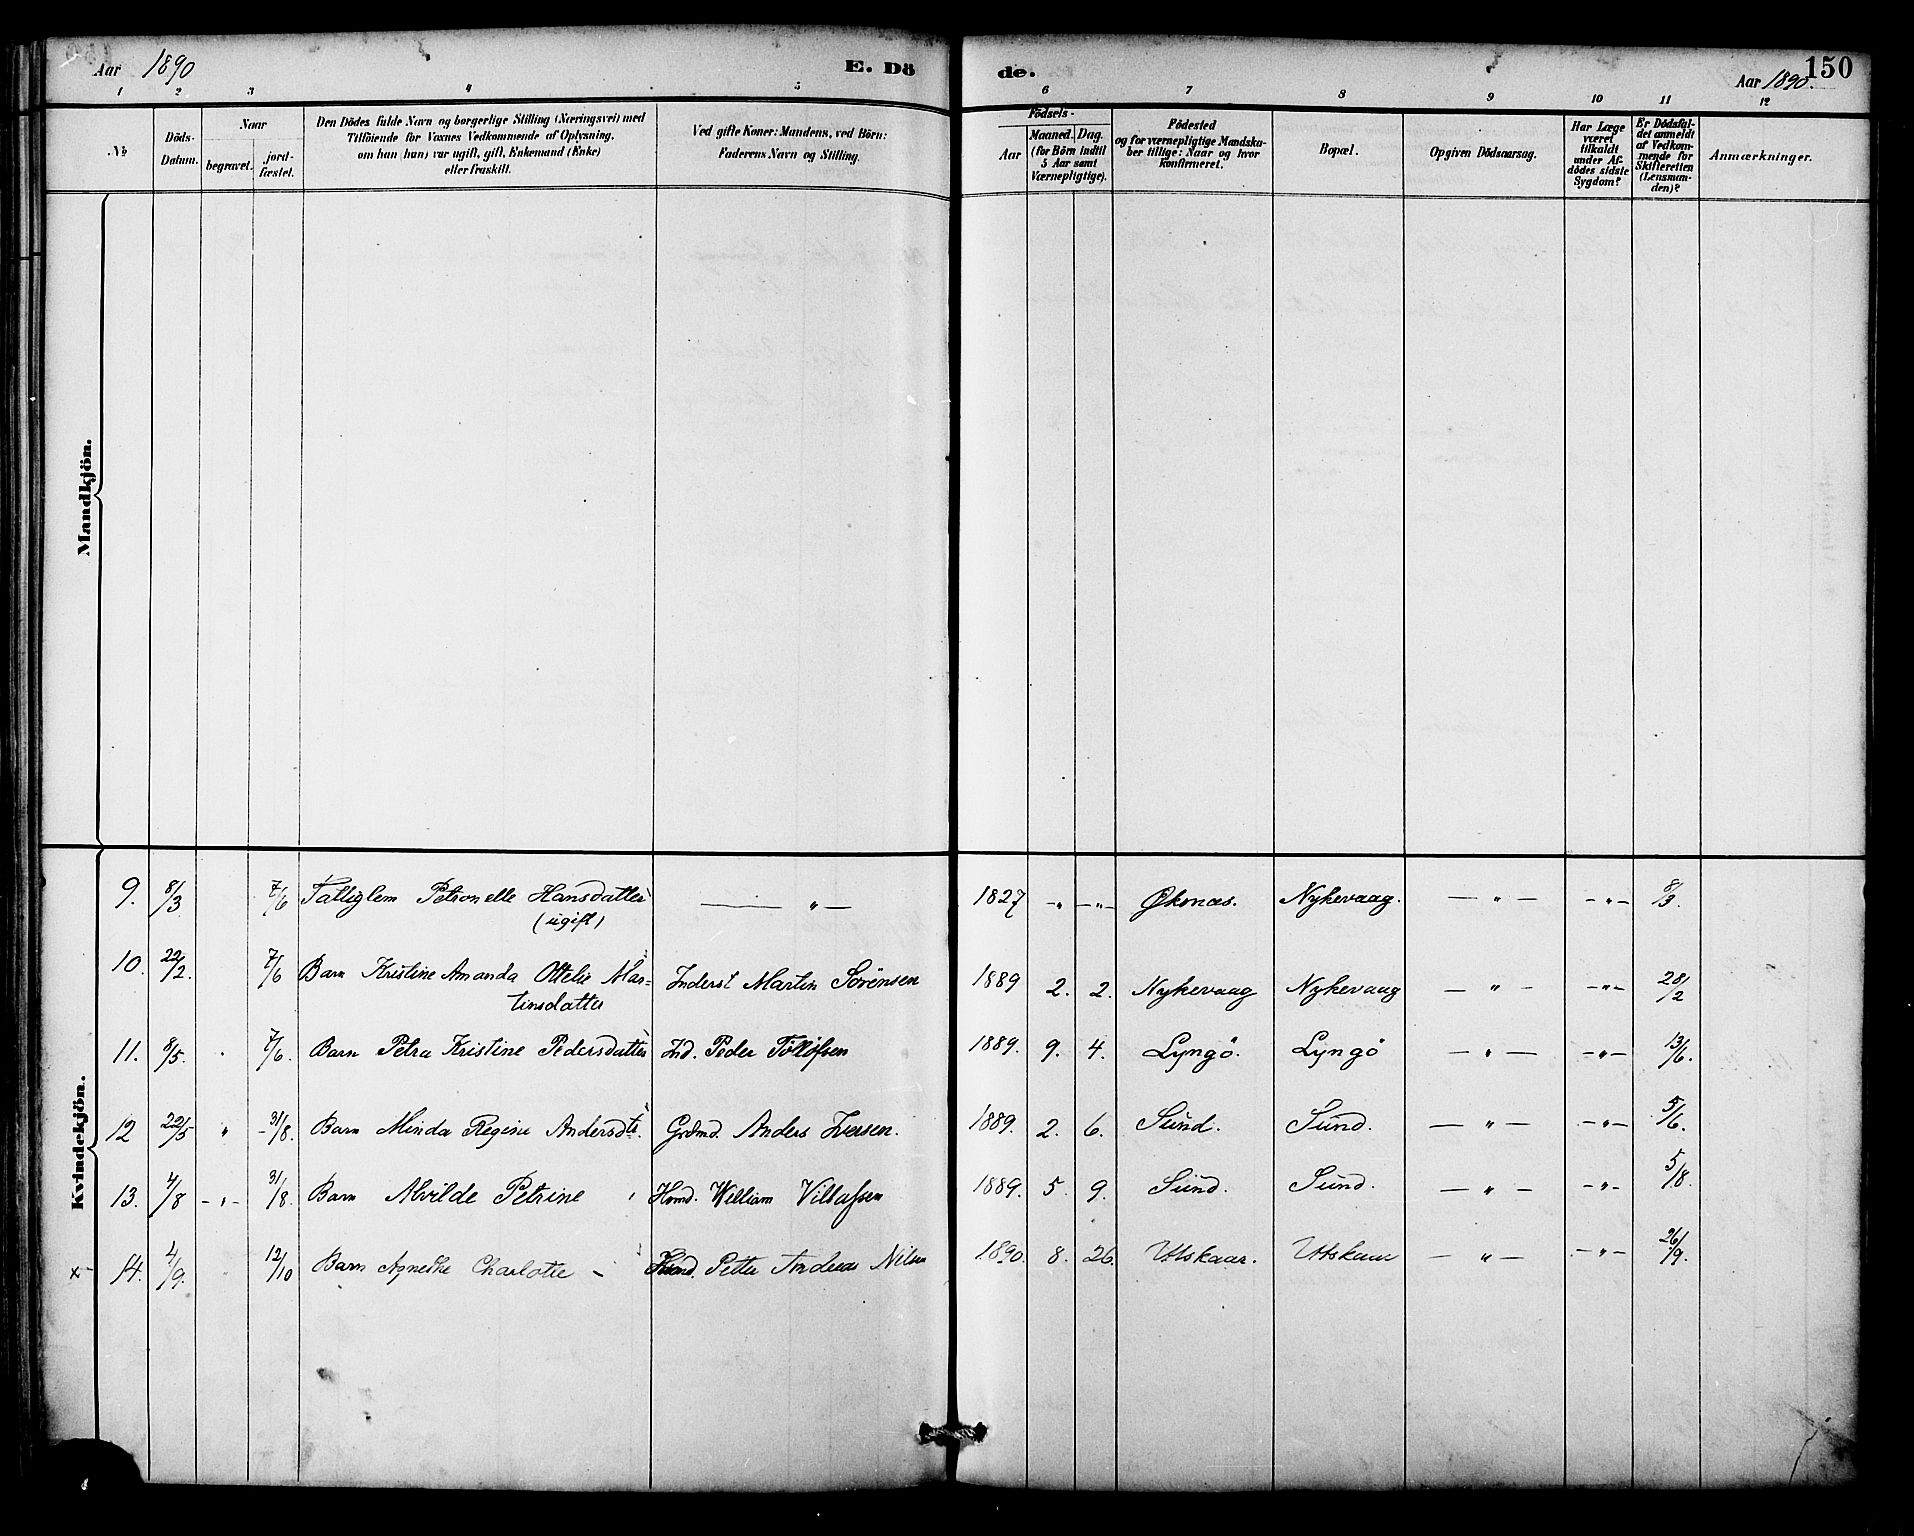 Aar 1890 E. Döde. Aar 1890. 150
1 2 3 4 5 6 7 8 9 10 11 12
№
Döds-Datum.
Naar
begravet.
jordfæstet.
Den Dödes fulde Navn og borgerlige Stilling (Næringsvei) med
Tilföiende for Voxnes Vedkommende af Oplysning.
om han (hun) var ugift, gift, Enkemand (Enke)
eller fraskilt.
Ved gifte Koner: Mandens, ved Börn:
Faderens Navn og Stilling.
Födsels-
Aar
Maaned. Dag.
(for Börn indtil
5 Aar samt
Værnepligtige).
Födested
og for værnepligtige Mandska-
ber tillige: Naar og hvor
konfirmeret.
Bopæl.
Opgiven Dödsaarsag.
Har Læge
været
tilkaldt
under Af-
dödes sidste
Sygdom?
Er Dödsfal-
det anmeldt
af Vedkom-
mende for
Skifteretten
(Lensman-
den)?
Anmærkninger.
Mandkjön.
Kvindekjön.
9. 8/3 7/6 Fattiglem Petronelle Hansdatter — " — 1827 -"- -"- Øksnæs. Nykevaag. — " — -"- 8/3.
(ugift)
10. 22/2. 7/6 Barn Kristine Amanda Ottelie Mar- Inderst Martin Sörensen 1889 2. 2. Nykevaag Nykevaag — " — -"- 28/2
tinsdatter
11. 8/5. " 7/6. Barn Petra Kristine Pedersdatter Ind. Peder Tollöfsen 1889. 9. 4. Lyngö. Lyngö — " — -"- 13/6.
12 22/5 " -31/8. Barn Minda Regine Andersdtr. Grdmd. Anders Iversen. 1889. 2. 6. Sund. Sund. — " — -"- 5/6.
13. 4/8 -"- 31/8. Barn Alvilde Petrine " Hmd. William Villassen 1889. 5. 9. Sund. Sund. — " — -"- 5/8.
x 14. 4/9. 12/10 Barn Agnethe Charlotte - Petter Andreas Nilsen 1890. 8. 26. Utskaar. Utskaar — " — -"- 26/9.